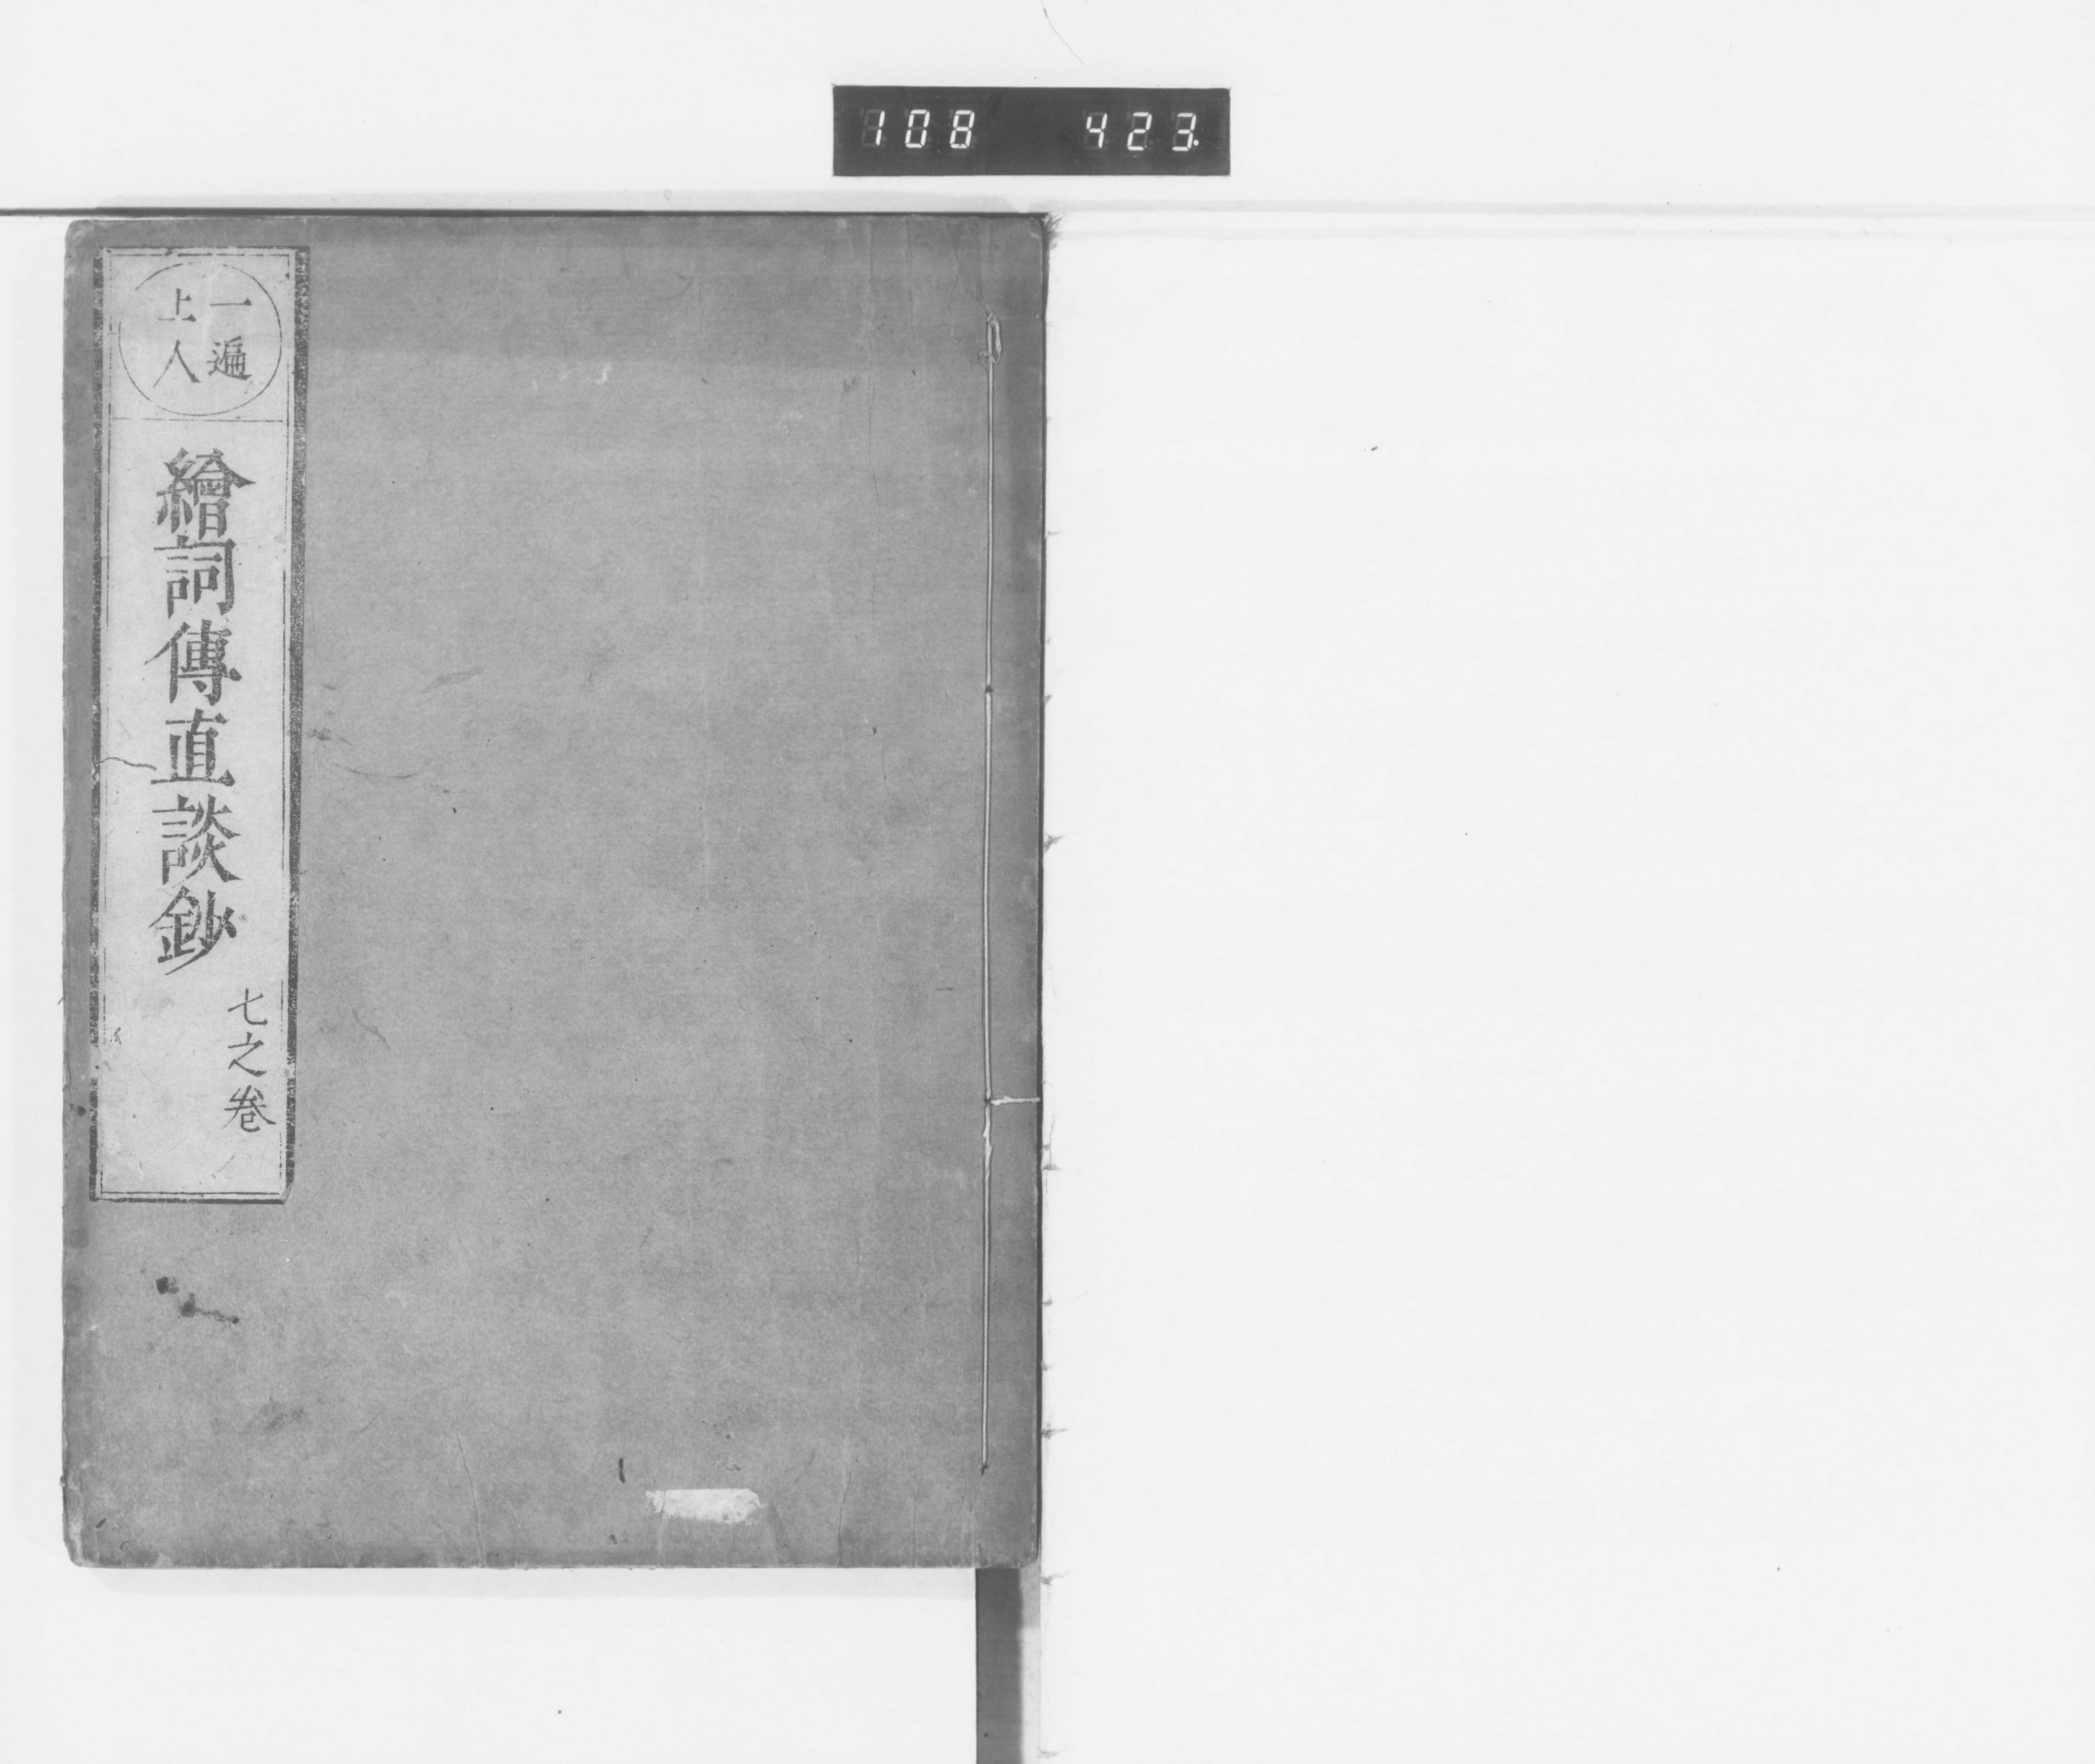 108 423.
一遍
上人
繪詞傳直談鈔
七之卷